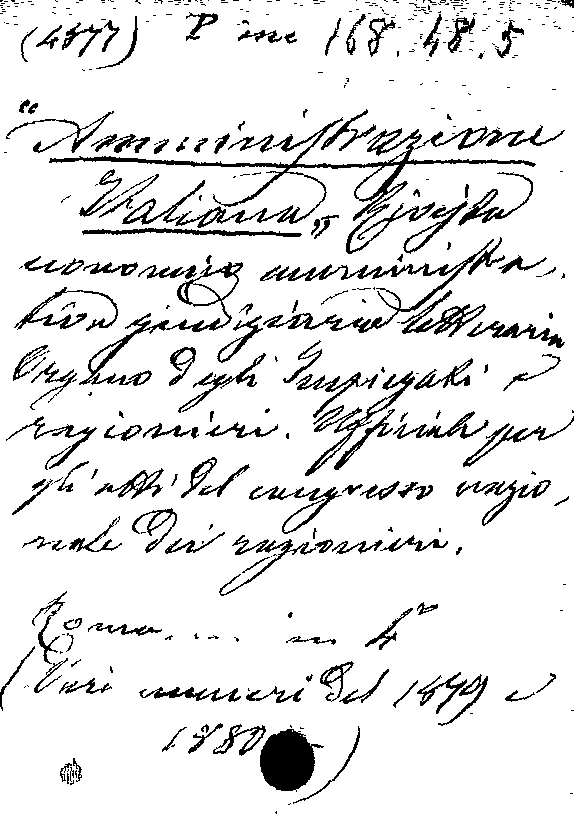 (4577) P inc 168. 48. 5
"Amministrazione
Italiana„ Rivista
economico amministra-
tiva giudiziaria letteraria
Organo degli Impiegati e
ragionieri. Officiale per
gli atti del congresso nazio-
nale dei ragionieri.
Roma.... in 4°
(Vari numeri del 1879 e
1880)